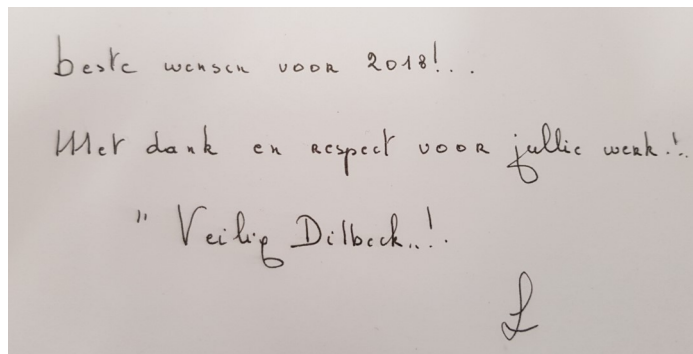 beste wensen voor 2018!...
Met dank en respect voor jullie werk!..
" Veilig Dilbeek..!.
L